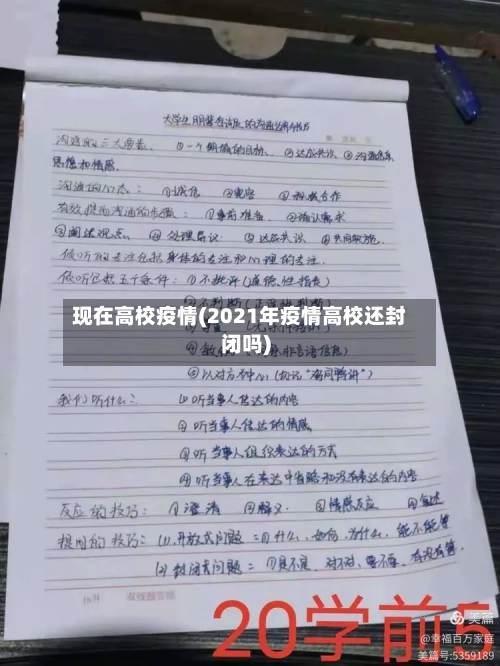 沟通的三大要素: ①一个明确的目标、②达成共识、③沟通信息
思想和情感.
沟通的心态: ①诚信 ②宽容 ③积极合作
有效提高沟通的步骤: ①事前准备、②确认需求
③阐述观点 ④处理异议 ⑤达成共识 ⑥共同实施.
倾听的专注包括身体的专注和心理的专注.
倾听包括五个条件: ①不批评(道德性指责)
现在高校疫情(2021年疫情高校还封
闭吗)
⑤以对方为中心
我们听什么: ①听当事人传达的内容
②听当事人传达的情感
③听当事人组织表达的方式
④听当事人在表达中省略和没有表达的内容
反应的技巧: ①澄清 ②释义 ③情感反应 ④叙述
提问的技巧: (1)开放式问题=①什么、如何、为什么、能不能等
(2)封闭式问题=①是不是、对不对、要不要、有没有等.
20学前
美篇
@幸福百万家庭
美篇号:5359189